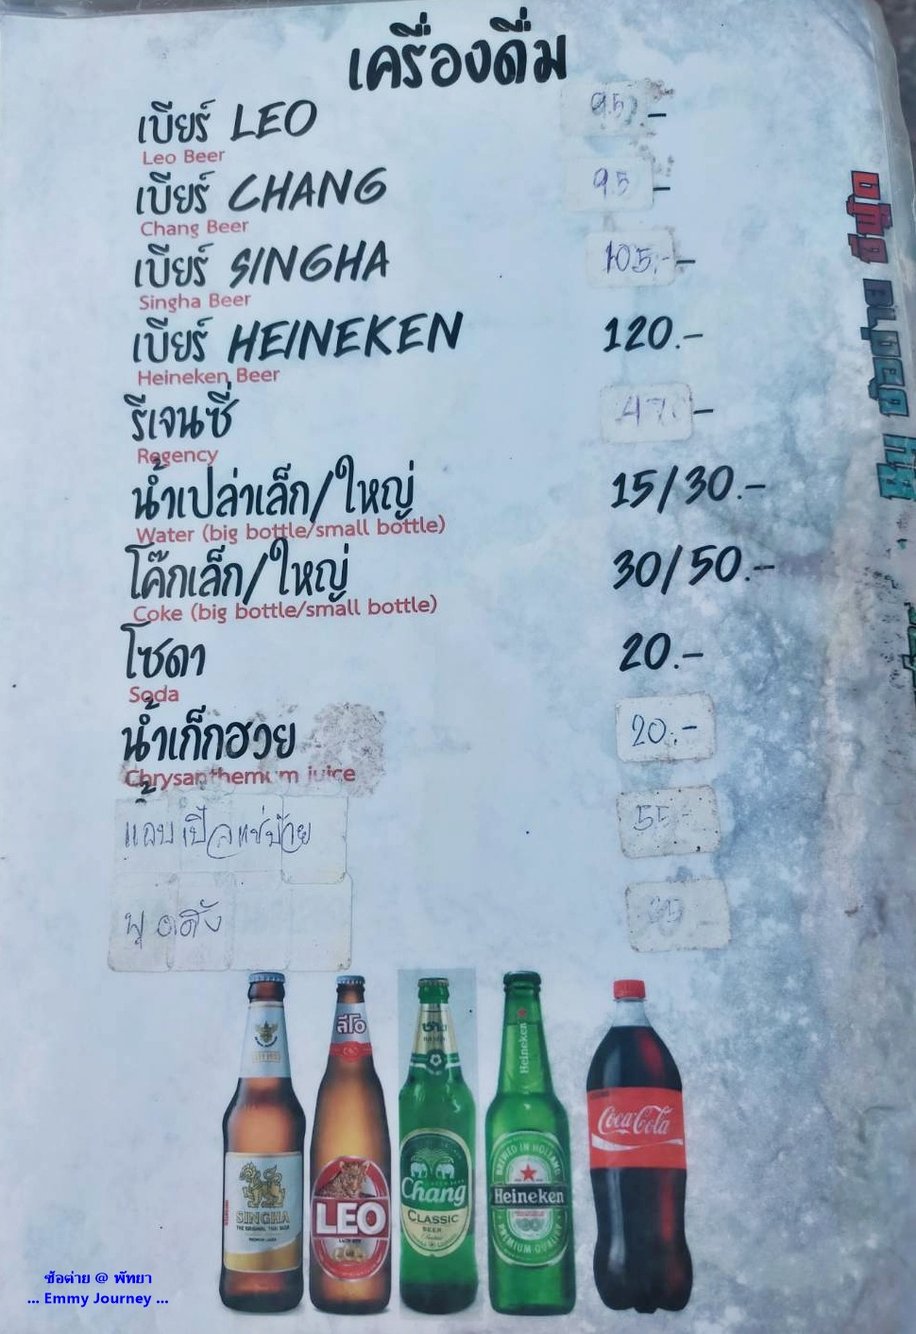 เครื่องดื่ม
เบียร์ LEO 95 -
Leo Beer
เบียร์ CHANG 95 -
Chang Beer
เบียร์ SINGHA 105.-
Singha Beer
เบียร์ HEINEKEN 120.-
Heineken Beer
รีเจนซี่
Regency
น้ำเปล่าเล็ก/ใหญ่ 15/30.-
Water (big bottle/small bottle)
โค๊กเล็ก/ใหญ่ 30/50.-
Coke (big bottle/small bottle)
โซดา 20.-
Soda
น้ำเก็กฮวย 20.-
Chrysanthemum juice
55.-
ลีโอ
ช้าง
Heineken
SINGHA
LEO
Chang
CLASSIC
BEER
Heineken
Coca-Cola
ซ้อต่าย @ พัทยา
... Emmy Journey ...